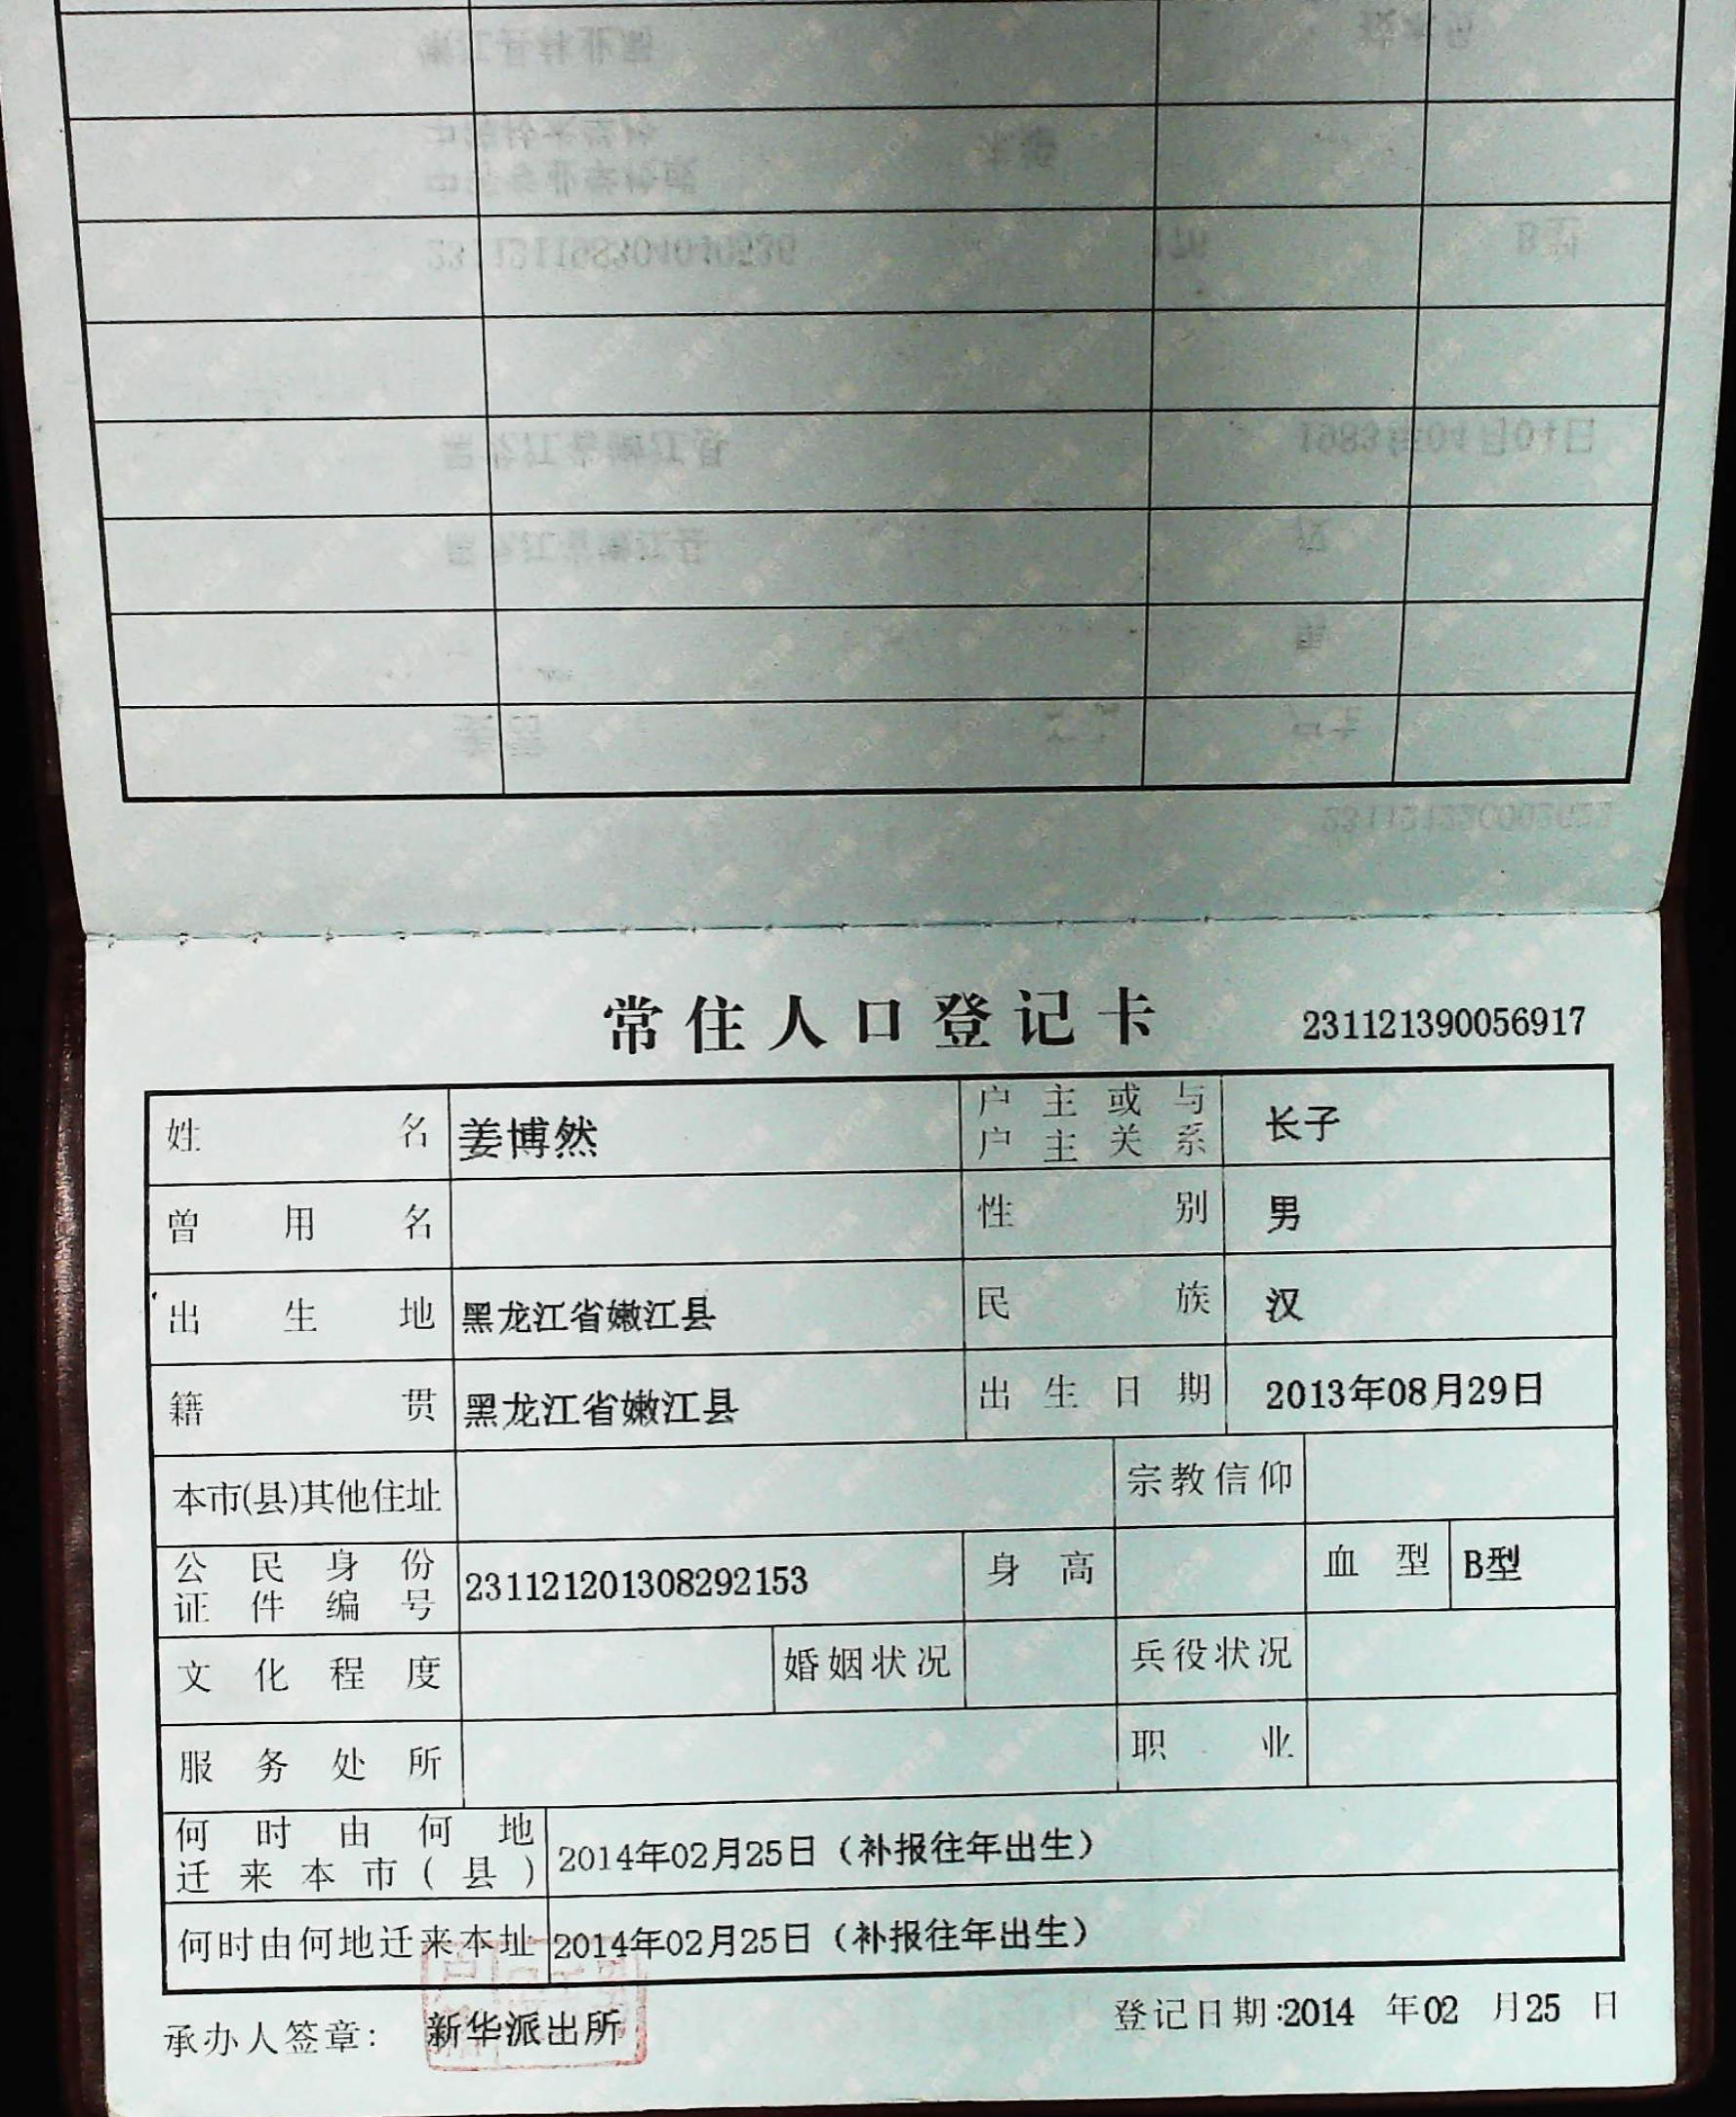 常住人口登记卡 231121390056917
姓名 姜博然 户主或与户主关系 长子
曾用名 性别 男
出生地 黑龙江省嫩江县 民族 汉
籍贯 黑龙江省嫩江县 出生日期 2013年08月29日
本市(县)其他住址 宗教信仰
公民身份证件编号 231121201308292153 身高 血型 B型
文化程度 婚姻状况 兵役状况
服务处所 职业
何时由何地迁来本市(县) 2014年02月25日（补报往年出生）
何时由何地迁来本址 2014年02月25日（补报往年出生）
承办人签章: 新华派出所 登记日期:2014 年02 月25 日